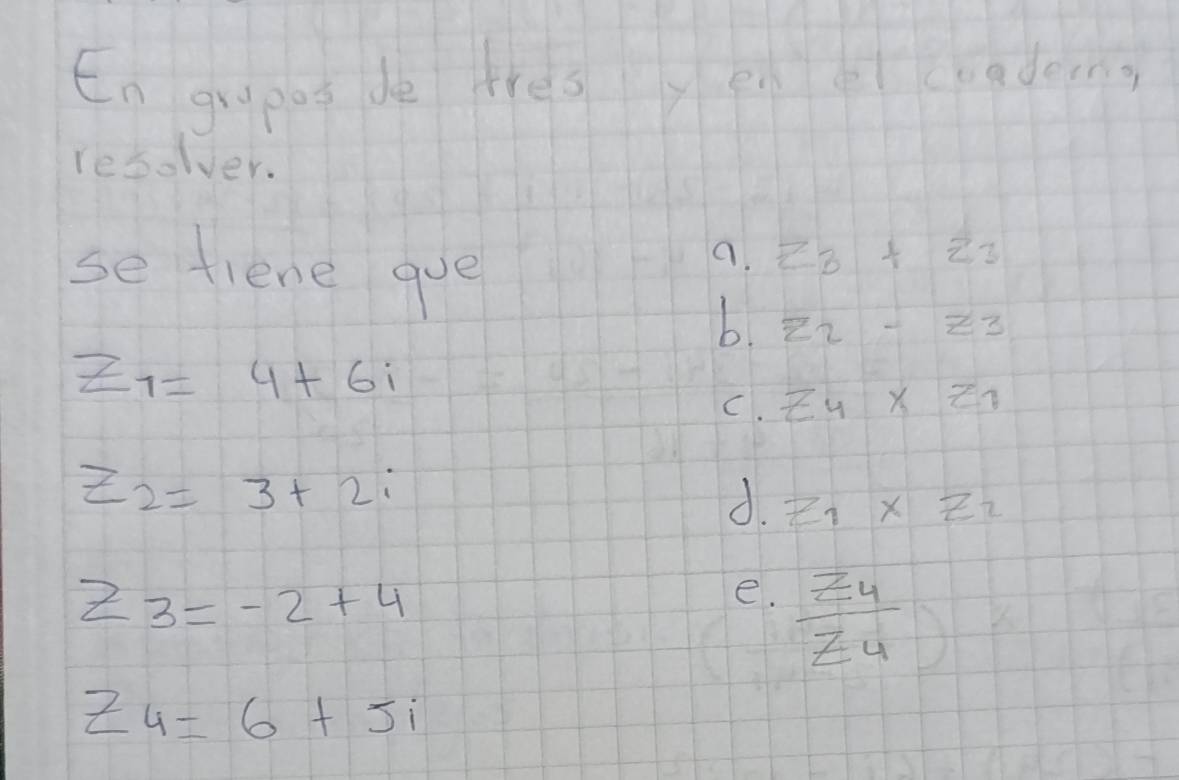 En grupos de tres y en el cuaderno,
resolver.
se tiene que
Z1= 4+6i
Z2= 3+2i
Z3=-2+4
Z4= 6+5i
a. Z3 + Z3
b. Z2 - Z3
c. Z4 x Z1
d. Z1 x Z2
e. Z4
Z4